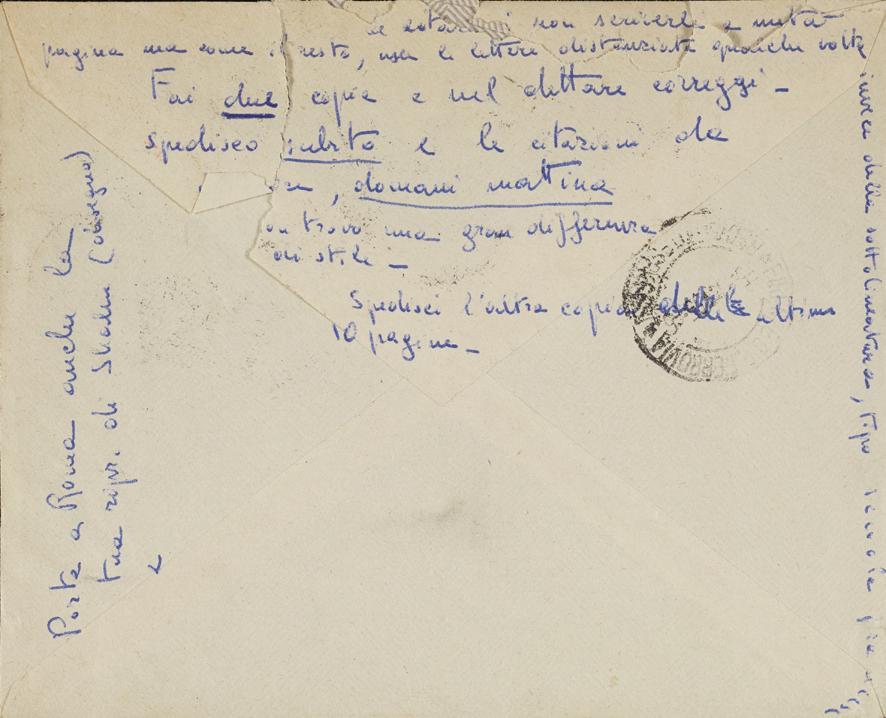 le citazioni non scriverle a metà
pagina ma come il resto, usa le lettere distanziate qualche volta
invece della sottolineatura, tipo
Fai due copie e nel dettare correggi -
spedisco subito e le citazioni da
domani mattina
trovo una gran differenza
di stile -
Spedisci l'altra copia delle ultime
10 pagine -
Porta a Roma anche la
tua ripr. di Shahn (disegno)
FERROVIA